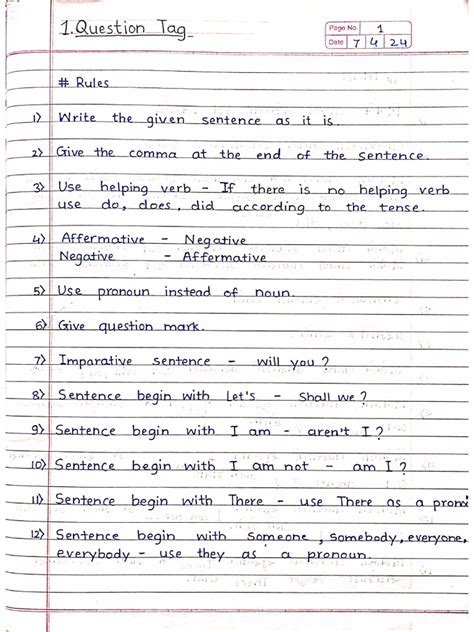 1. Question Tag
Page No. 1
Date 7 4 24
# Rules
1) Write the given sentence as it is.
2) Give the comma at the end of the sentence.
3) Use helping verb - If there is no helping verb
use do, does, did according to the tense.
4) Affermative - Negative
Negative - Affermative
5) Use pronoun instead of noun.
6) Give question mark.
7) Imparative sentence - will you?
8) Sentence begin with Let's - Shall we?
9) Sentence begin with I am - aren't I?
10) Sentence begin with I am not - am I?
11) Sentence begin with There - use There as a prono
12) Sentence begin with Someone, Somebody, everyone,
everybody - use they as a pronoun.